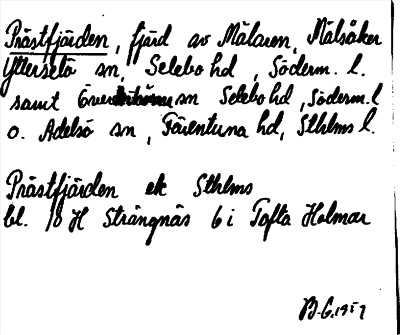 Prästfjärden, fjärd av Mälaren, Mälsåker
Ytterselö sn, Selebo hd, Söderm. l.
samt Över sn Selebo hd, Söderm. l
o. Adelsö sn, Färentuna hd, Sthlms l.
Prästfjärden ek Sthlms
bl. 10 H Strängnäs 6 i Tofta Holmar
1959